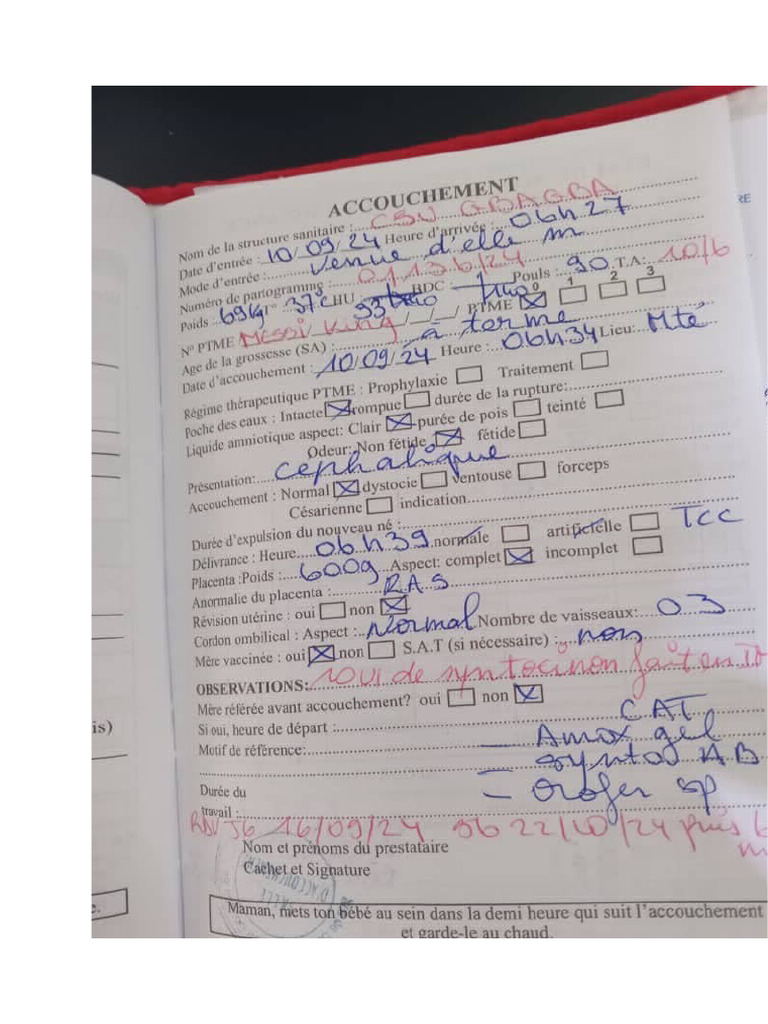 ACCOUCHEMENT
Nom de la structure sanitaire : CSU GBAGBA
Date d'entrée : 10/09/24 Heure d'arrivée : 06h27
Mode d'entrée : venue d'elle m
Numéro de partogramme : 01136/24
Poids : 69kg T° 37°C HU : 33 BDC Pouls : 90 T.A: 10/6
N° PTME PTME 0 1 2 3
Age de la grossesse (SA) : à terme
Date d'accouchement : 10/09/24 Heure : 06h34 Lieu: Mté
Régime thérapeutique PTME : Prophylaxie Traitement
Poche des eaux : Intacte rompue durée de la rupture:
Liquide amniotique aspect: Clair purée de pois teinté
Odeur: Non fétide fétide
Présentation: céphalique
Accouchement : Normal dystocie ventouse forceps
Césarienne indication
Durée d'expulsion du nouveau né :
Délivrance : Heure 06h39 normale artificielle TCC
Placenta :Poids : 600g Aspect: complet incomplet
Anormalie du placenta : RAS
Révision utérine : oui non
Cordon ombilical : Aspect : Normal Nombre de vaisseaux: 03
Mère vaccinée : oui non S.A.T (si nécessaire) : non
OBSERVATIONS: 10 UI de syntocinon fait en
Mère référée avant accouchement? oui non
Si oui, heure de départ : CAT
Motif de référence: - Amox gel
- AB
Durée du - orofer sp
travail :
RDV J6 16/09/24 22/10/24 puis 6
Nom et prénoms du prestataire
Cachet et Signature
Maman, mets ton bébé au sein dans la demi heure qui suit l'accouchement
et garde-le au chaud.
is)
e.
RE